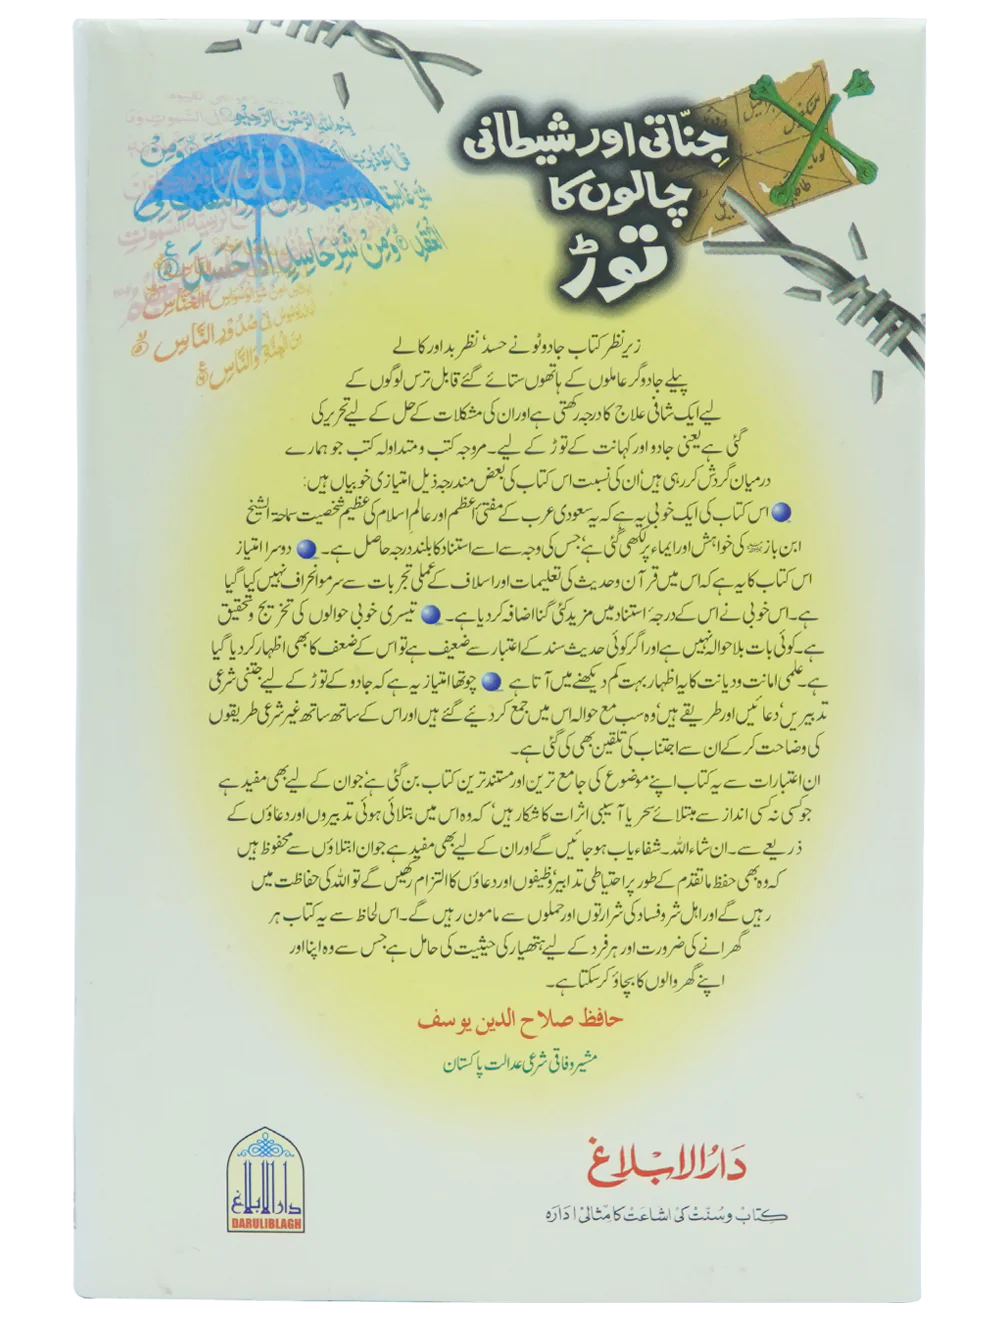 جنّاتی اور شیطانی
چالوں کا
توڑ
بِسْمِ اللہِ الرَّحْمٰنِ الرَّحِیْمِ
زیر نظر کتاب جادو ٹونے حسد‘ نظر بد اور کالے
پیلے جادوگر عاملوں کے ہاتھوں ستائے گئے قابل ترس لوگوں کے
لیے ایک شافی علاج کا درجہ رکھتی ہے اور ان کی مشکلات کے حل کے لیے تحریر کی
گئی ہے یعنی جادو اور کہانت کے توڑ کے لیے۔ مروجہ کتب و متداولہ کتب جو ہمارے
درمیان گردش کر رہی ہیں‘ ان کی نسبت اس کتاب کی بعض مندرجہ ذیل امتیازی خوبیاں ہیں:
اس کتاب کی ایک خوبی یہ ہے کہ یہ سعودی عرب کے مفتئ اعظم اور عالم اسلام کی عظیم شخصیت سماحۃ الشیخ
ابن باز کی خواہش اور ایماء پر لکھی گئی ہے‘ جس کی وجہ سے اسے استناد کا بلند درجہ حاصل ہے۔ دوسرا امتیاز
اس کتاب کا یہ ہے کہ اس میں قرآن و حدیث کی تعلیمات اور اسلاف کے عملی تجربات سے سرمو انحراف نہیں کیا گیا
ہے۔ اس خوبی نے اس کے درجۂ استناد میں مزید کئی گنا اضافہ کر دیا ہے۔ تیسری خوبی حوالوں کی تخریج و تحقیق
ہے۔ کوئی بات بلا حوالہ نہیں ہے اور اگر کوئی حدیث سند کے اعتبار سے ضعیف ہے تو اس کے ضعف کا بھی اظہار کر دیا گیا
ہے۔ علمی امانت و دیانت کا یہ اظہار بہت کم دیکھنے میں آتا ہے چوتھا امتیاز یہ ہے کہ جادو کے توڑ کے لیے جتنی شرعی
تدبیریں‘ دعائیں اور طریقے ہیں‘ وہ سب مع حوالہ اس میں جمع کر دیئے گئے ہیں اور اس کے ساتھ ساتھ غیر شرعی طریقوں
کی وضاحت کر کے ان سے اجتناب کی تلقین بھی کی گئی ہے۔
ان اعتبارات سے یہ کتاب اپنے موضوع کی جامع ترین اور مستند ترین کتاب بن گئی ہے‘ جو ان کے لیے بھی مفید ہے
جو کسی نہ کسی انداز سے مبتلائے سحر یا آسیبی اثرات کا شکار ہیں‘ کہ وہ اس میں بتلائی ہوئی تدبیروں اور دعاؤں کے
ذریعے سے۔ ان شاء اللہ۔ شفاء یاب ہو جائیں گے اور ان کے لیے بھی مفید ہے جو ان ابتلاؤں سے محفوظ ہیں
کہ وہ بھی حفظ ما تقدم کے طور پر احتیاطی تدابیر‘ وظیفوں اور دعاؤں کا التزام رکھیں گے تو اللہ کی حفاظت میں
رہیں گے اور اہل شر و فساد کی شرارتوں اور حملوں سے مامون رہیں گے۔ اس لحاظ سے یہ کتاب ہر
گھرانے کی ضرورت اور ہر فرد کے لیے ہتھیار کی حیثیت کی حامل ہے جس سے وہ اپنا اور
اپنے گھر والوں کا بچاؤ کر سکتا ہے۔
حافظ صلاح الدین یوسف
مشیر وفاقی شرعی عدالت پاکستان
دارالابلاغ
کتاب و سنت کی اشاعت کا مثالی ادارہ
دارالابلاغ
DARULIBLAGH